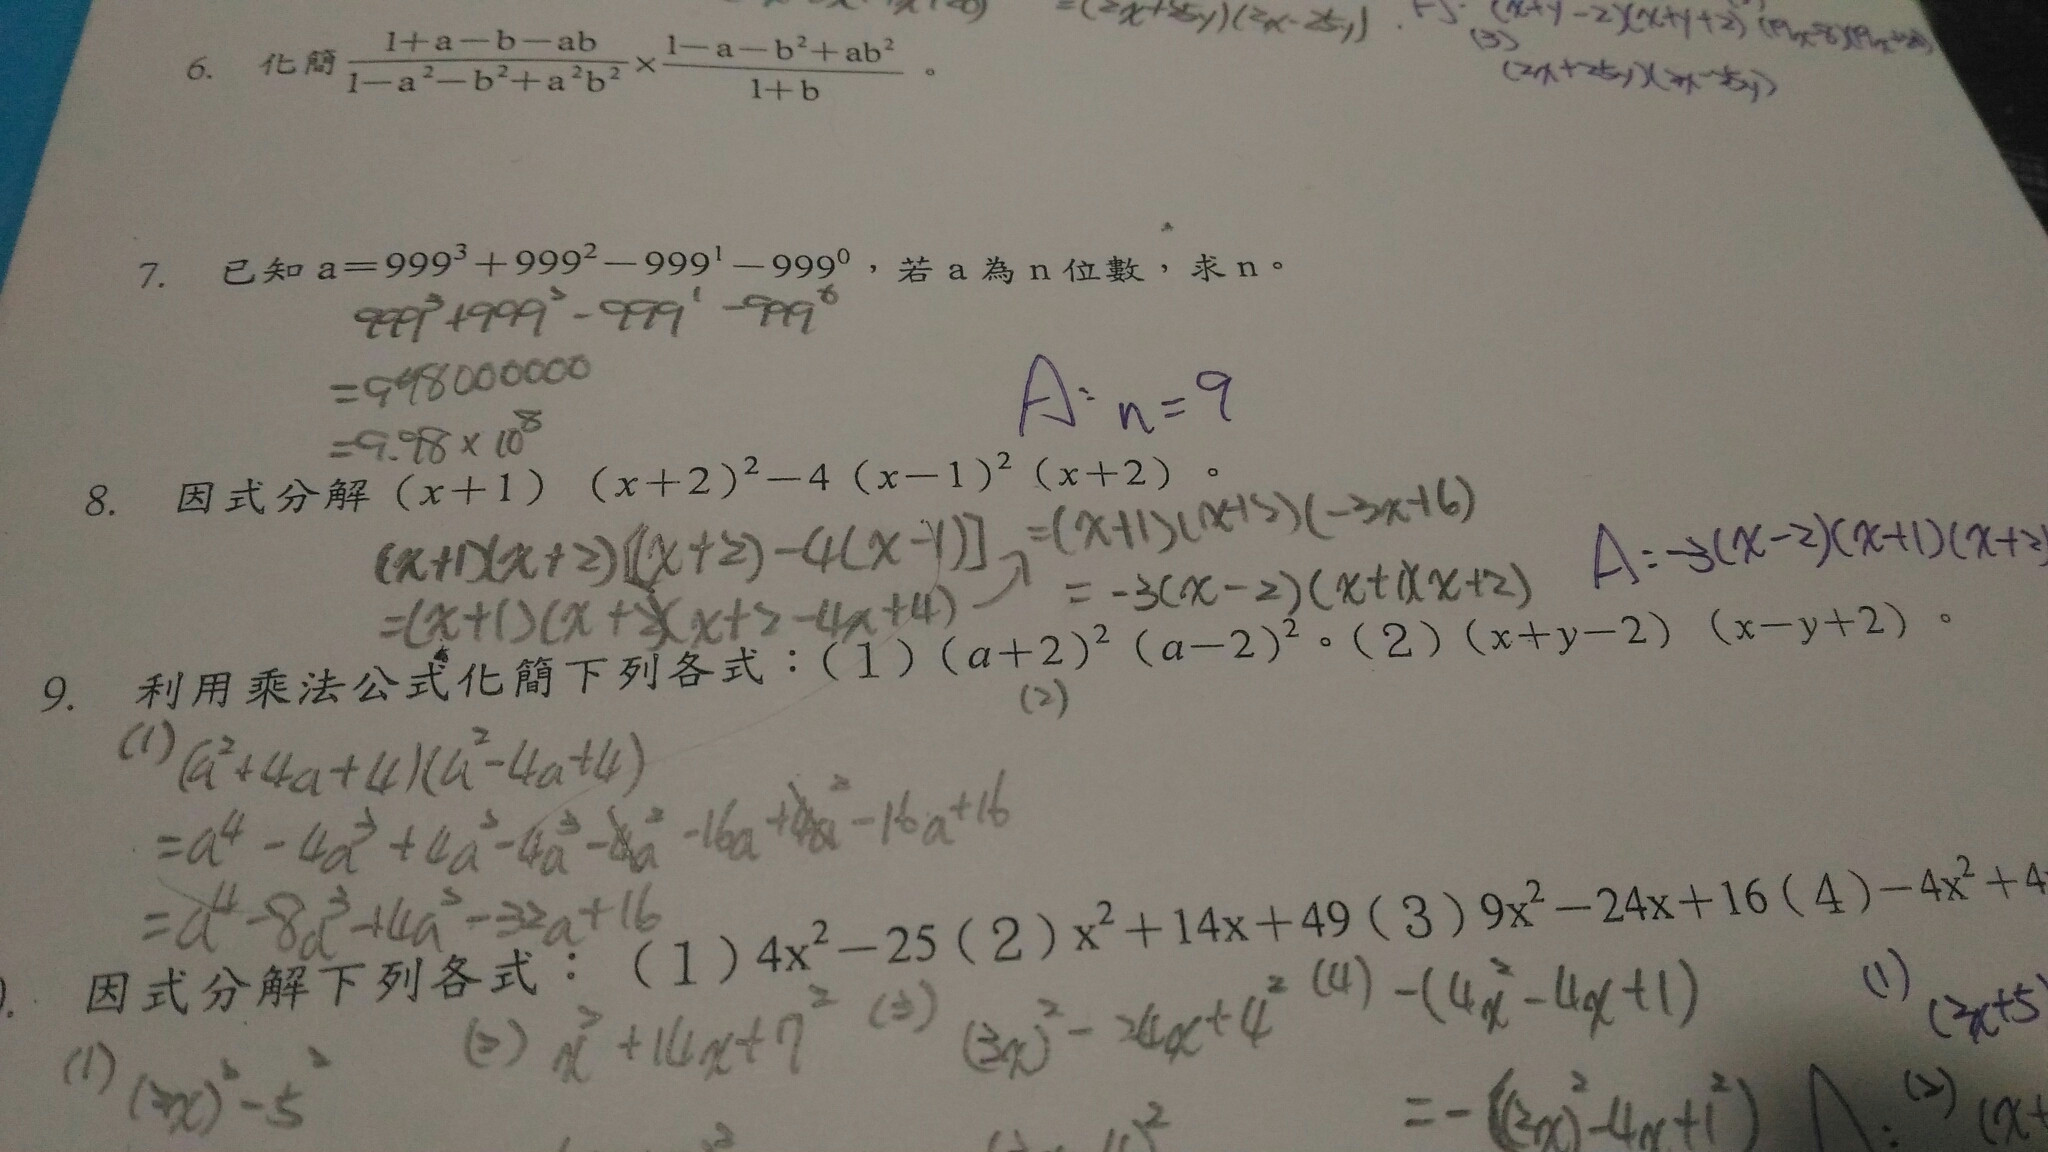 =(2x+25y)(2x-25y)
(x+y-2)(x+y+2)
(3)
(2x+25y)(2x-25y)
6. 化簡 (1+a-b-ab)/(1-a²-b²+a²b²) × (1-a-b²+ab²)/(1+b)。
7. 已知 a=999³+999²-999¹-999⁰,若 a 為 n 位數,求 n。
999³+999²-999¹-999⁰
=998000000
=9.98×10⁸
A: n=9
8. 因式分解(x+1)(x+2)²-4(x-1)²(x+2)。
(x+1)(x+2)[(x+2)-4(x-1)]
=(x+1)(x+2)(x+2-4x+4)
=(x+1)(x+2)(-3x+6)
=-3(x-2)(x+1)(x+2)
A:-3(x-2)(x+1)(x+2
9. 利用乘法公式化簡下列各式:(1)(a+2)²(a-2)²。(2)(x+y-2)(x-y+2)。
(2)
(1)(a²+4a+4)(a²-4a+4)
=a⁴-8a³+4a²-32a+16
因式分解下列各式:(1)4x²-25(2)x²+14x+49(3)9x²-24x+16(4)-4x²+4
(1) (2x)²-5²
(2) x²+14x+7²
(3) (3x)²-24x+4²
(4) -(4x²-4x+1)
=-((2x)²-4x+1²)
(1) (2x+5)
A: (2) (x+